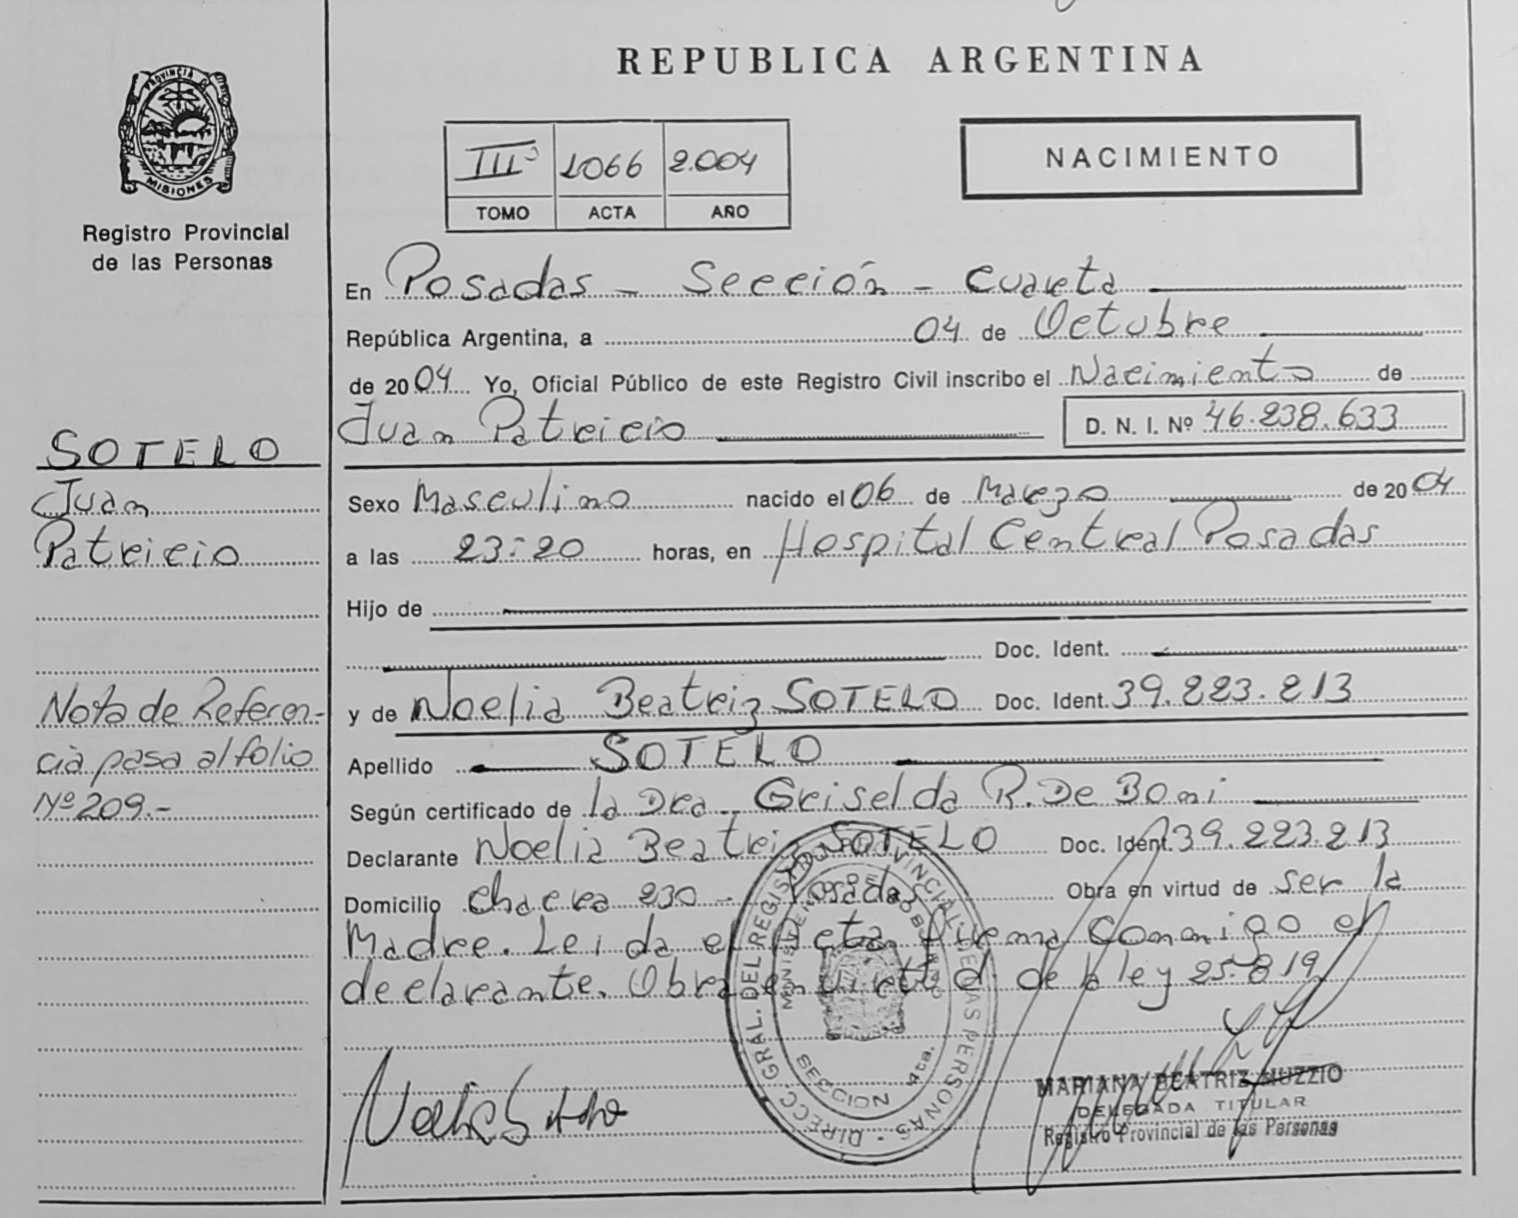 REPUBLICA ARGENTINA
PROVINCIA DE
MISIONES
Registro Provincial
de las Personas
III 1066 2.004
TOMO ACTA AÑO
NACIMIENTO
En Posadas - Sección - Cuarta
República Argentina, a 04 de Octubre
de 2004 Yo, Oficial Público de este Registro Civil inscribo el Nacimiento de
Juan Patricio D. N. I. Nº 46.238.633
SOTELO
Juan
Patricio
Sexo Masculino nacido el 06 de Marzo de 2004
a las 23:20 horas, en Hospital Central Posadas
Hijo de
Doc. Ident.
Nota de Referen-
cia pasa al folio
Nº 209.-
y de Noelia Beatriz SOTELO Doc. Ident. 39.223.213
Apellido SOTELO
Según certificado de la Dra. Griselda R. De Boni
Declarante Noelia Beatriz SOTELO Doc. Ident. 39.223.213
Domicilio Chacra 230 - Posadas Obra en virtud de ser la
Madre. Leida el Acta, firma conmigo el
declarante. Obra en virtud de la ley 25.819
DIRECC. GRAL. DEL REGISTRO PROVINCIAL DE LAS PERSONAS
MINISTERIO DE GOBIERNO
SECCION 4ta.
Noelia Sotelo
MARIANA BEATRIZ MUZZIO
DELEGADA TITULAR
Registro Provincial de las Personas